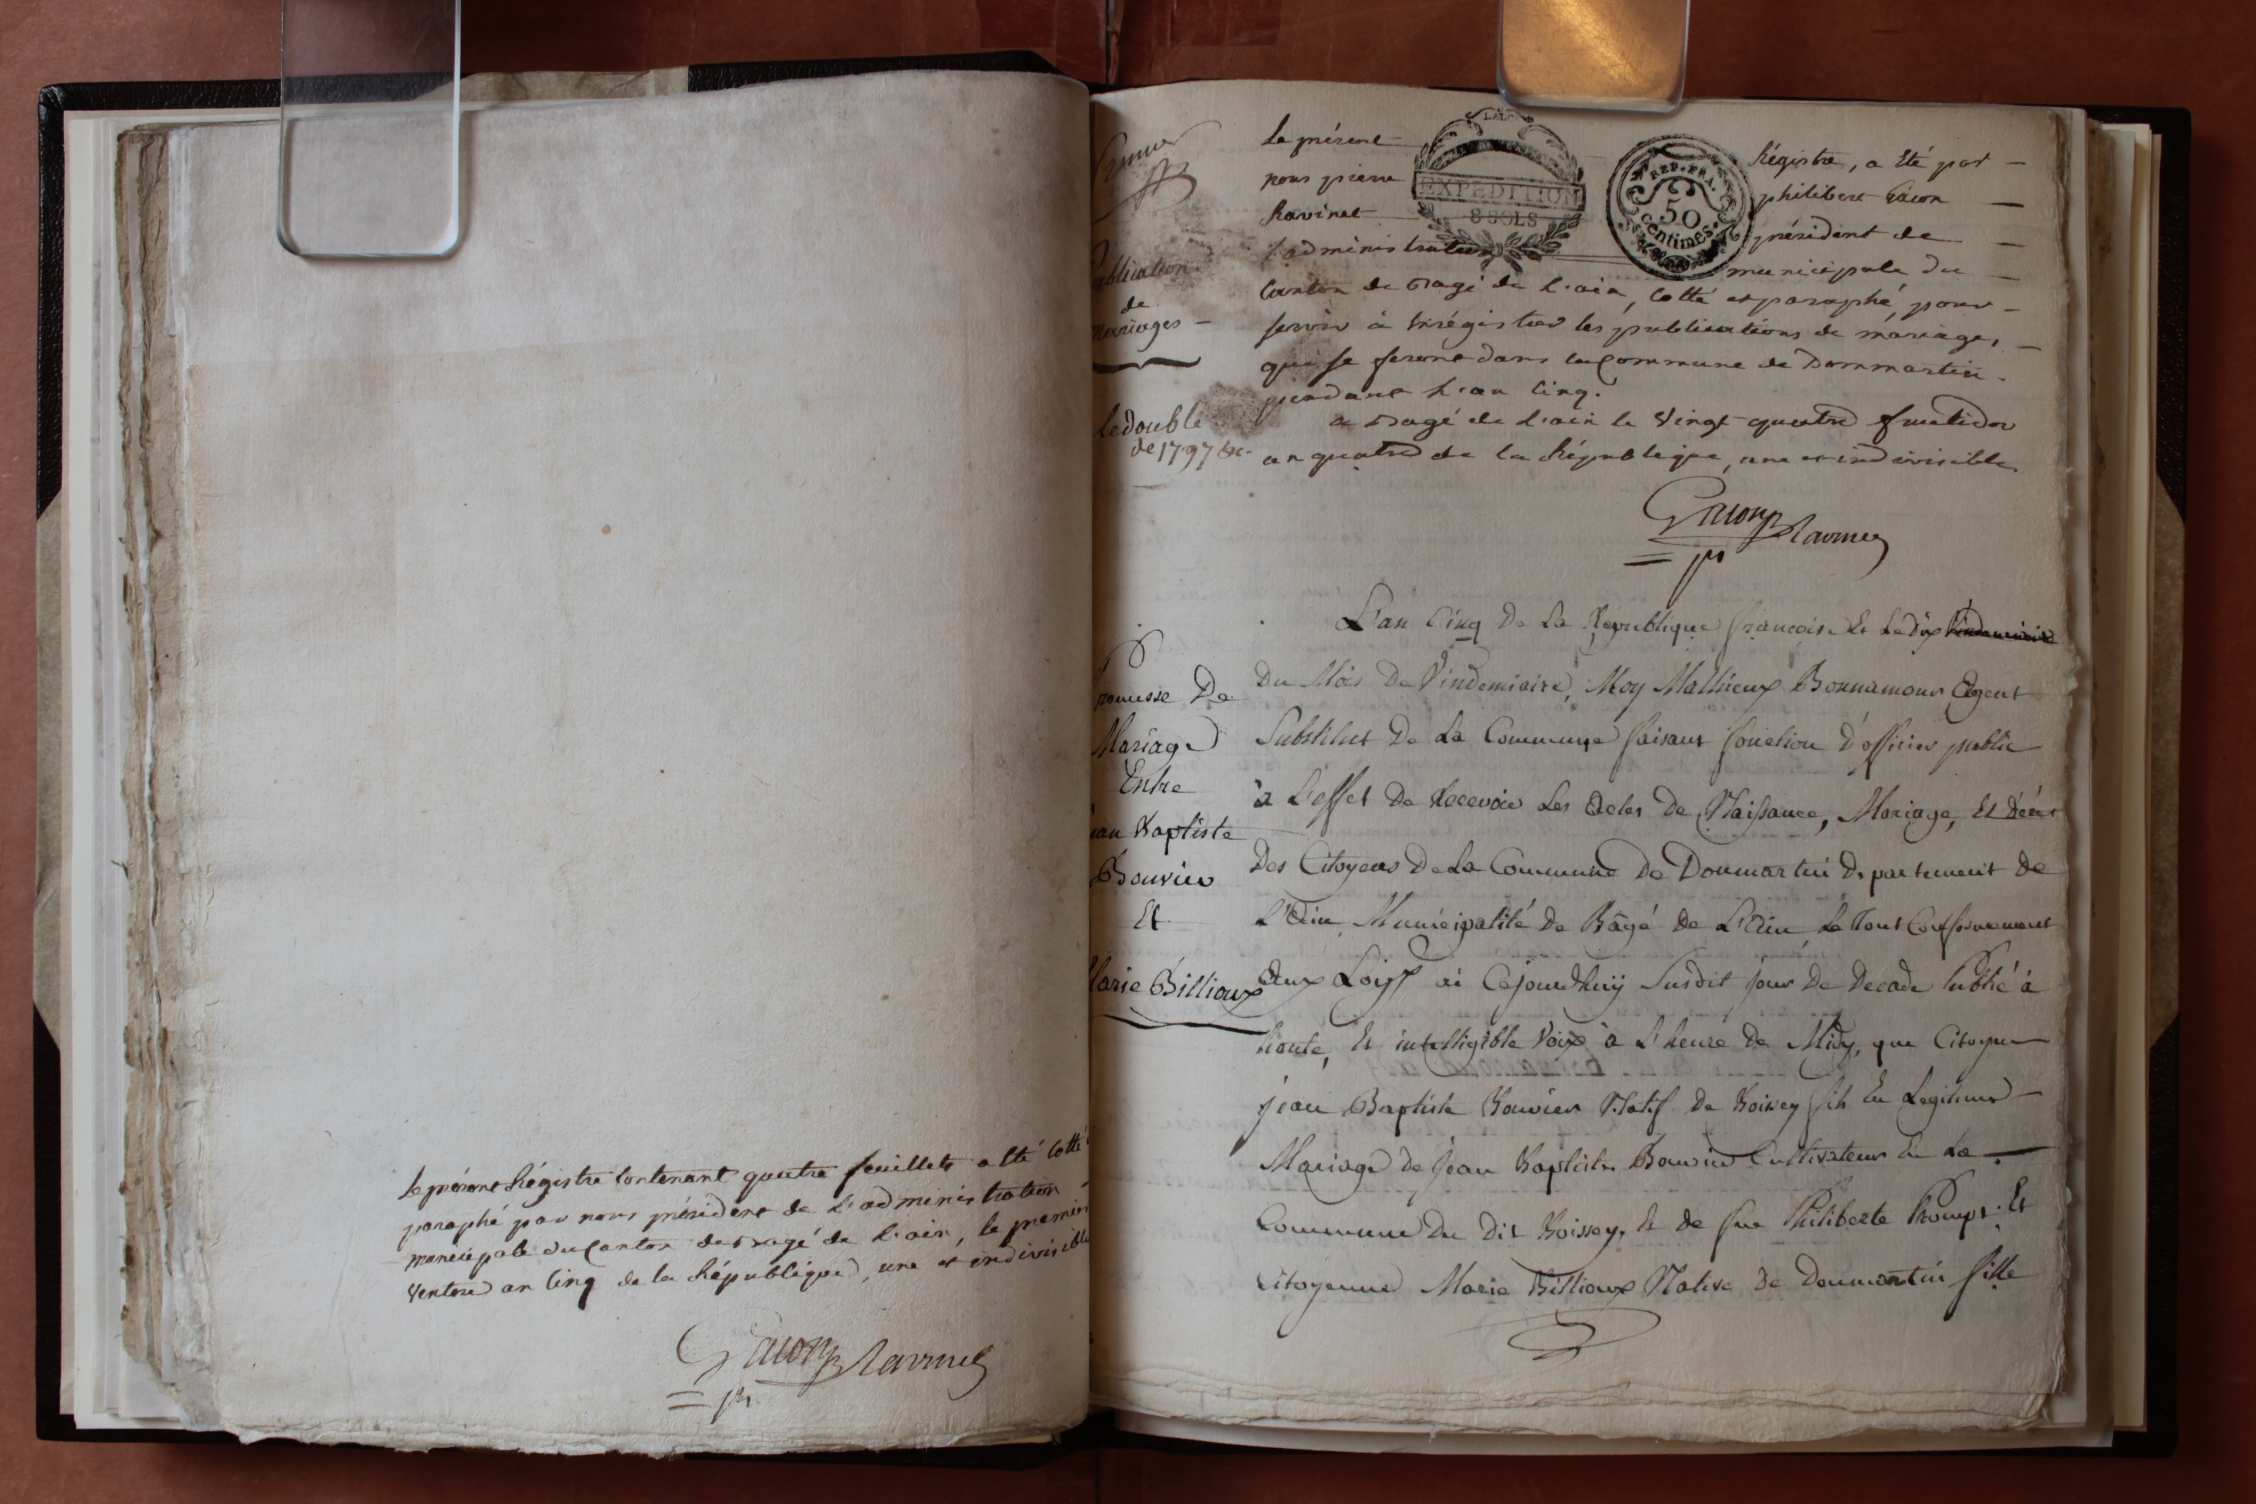 Le présent Régistre contenant quatre feuillets a été cotté
paraphé par nous président de l'administration
municipale du Canton de Bagé de l'ain, le premier
Ventose an cinq de la République, une et indivisible
Gacon Ravinet
pt
Premier
Publication
de
Mariages
Le double
de 1797 &c.
Le présent Régistre, a été par
nous pierre philibert Gacon
Ravinet président de
l'administration municipale du
Canton de Bagé de l'ain, cotté et paraphé, pour
servir à enrégistrer les publications de mariage,
qui se feront dans la Commune de Dommartin
pendant l'an cinq.
a Bagé de l'ain le vingt-quatre fructidor
an quatre de la République, une et indivisible
Gacon Ravinet
pt
LA LOI
EXPEDITION
8 SOLS
REP. FRA.
50
centimes
Promesse De
Mariage
Entre
jean Baptiste
Bouvier
Et
Marie Billioux
L'an Cinq De La Republique françoise Et Le dix vindemiaire
Du Mois De Vindemiaire, Moy Mathieux Bonnamour Agent
Substitut De La Commune faisant fonction d'officier public
à L'effet De Recevoir Les Actes De Naissance, Mariage, Et Décès
Des Citoyens De La Commune De Donmartin Departement De
L'Ain, Municipalité De Bâgé De L'Ain, Le Tout Conformement
Aux Loix ai Cejourdhuij Susdit jour De Decade Publié à
haute, Et intelligible Voix à L'heure De Midy, que Citoyen
jean Baptiste Bouvier Natif De Boissey fils En Legitime
Mariage de jean Baptiste Bouvier Cultivateur En La
Commune Du Dit Boissey, Et de feue Philiberte Prompt. Et
Citoyenne Marie Billioux Native De Donmartin fille